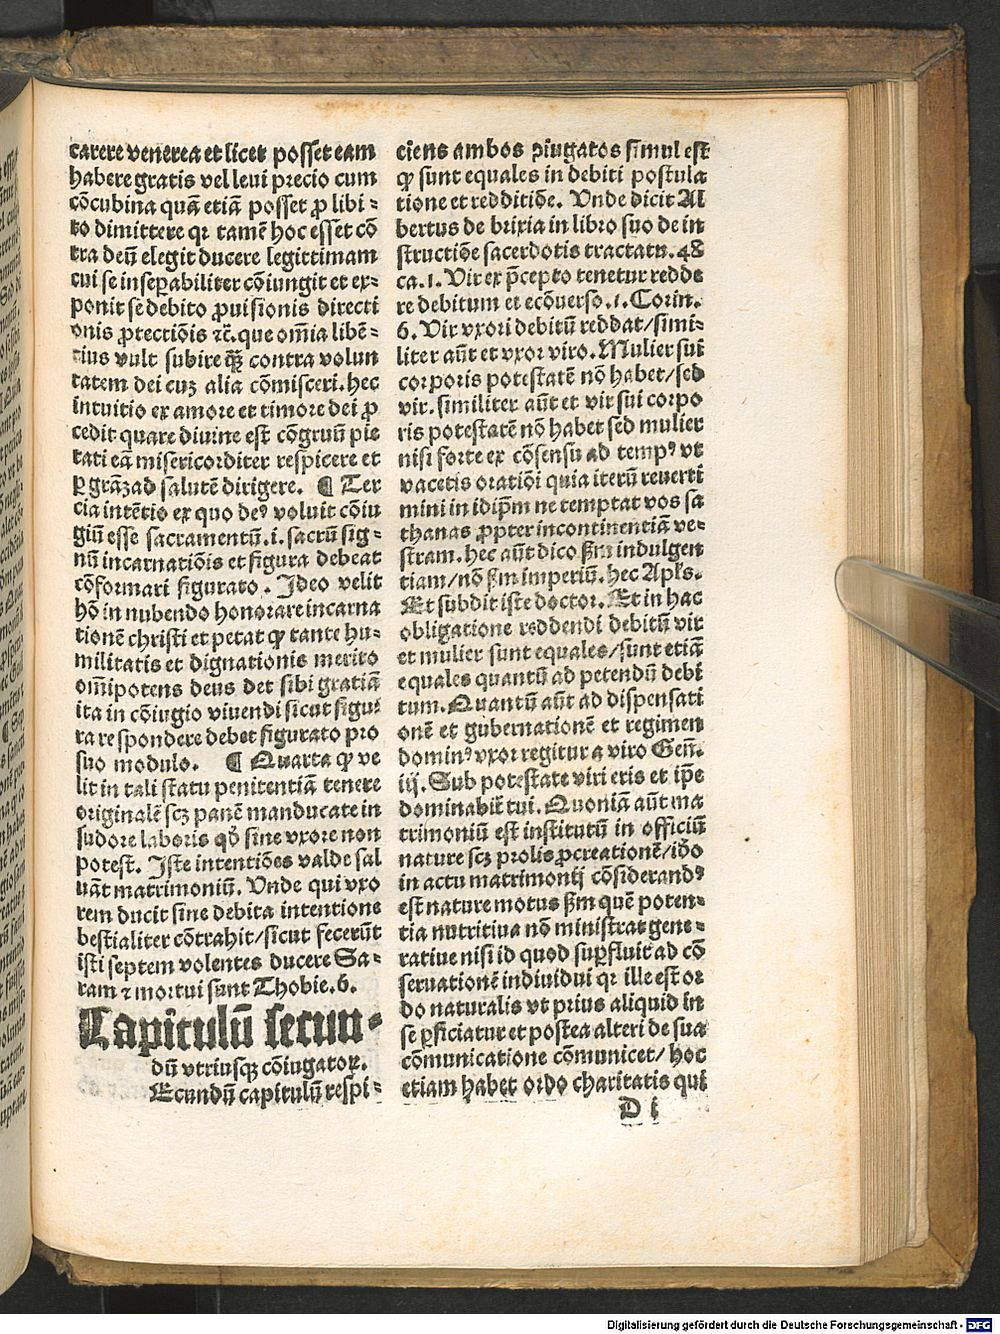 carere venerea et licet posset eam
habere gratis vel leui precio cum
cōcubina quā etiā posset ꝓ libi⸗
to dimittere qꝛ tamē hoc esset cō
tra deū elegit ducere legittimam
cui se inseꝑabiliter cōiungit et ex⸗
ponit se debito ꝓuisionis directi
onis ꝓtectiōis ⁊c̄. que om̄ia libē⸗
tius vult subire qȝ̄ contra volun
tatem dei cuȝ alia cōmisceri. hec
intuitio ex amore et timore dei ꝓ
cedit quare diuine est cōgruū pie
tati eā misericorditer respicere et
ꝑ gr̄aȝ ad salutē dirigere. ¶ Ter
cia intētio ex quo deꝰ voluit cōiu
giū esse sacramentū. i. sacrū sig⸗
nū incarnatiōis et figura debeat
cōformari figurato. Ideo velit
hō in nubendo honorare incarna
tionē christi et petat ꝙ tante hu⸗
militatis et dignationis merito
om̄ipotens deus det sibi gratiā
ita in cōiugio viuendi sicut figu⸗
ra respondere debet figurato pro
suo modulo. ¶ Quarta ꝙ ve
lit in tali statu penitentiā tenere
originalē scȝ panē manducate in
sudore laboris qd̄ sine vxore non
potest. Iste intentiōes valde sal
uāt matrimoniū. Vnde qui vxo
rem ducit sine debita intentione
bestialiter cōtrahit/sicut fecerūt
isti septem volentes ducere Sa⸗
ram ⁊ mortui sunt Thobie. 6.
Capitulū secun⸗
dū vtriusqȝ cōiugatoꝝ.
Ecundū capitulū respi⸗
ciens ambos ↄiugatos simul est
ꝙ sunt equales in debiti postula
tione et redditiōe. Vnde dicit Al
bertus de brixia in libro suo de in
structiōe sacerdotis tractatu. 48
ca. 1. Vir ex p̄cepto tenetur redde
re debitum et ecōuerso. 1. Corin.
6. Vir vxori debitū reddat/simi⸗
liter aūt et vxor viro. Mulier sui
corporis potestatē nō habet/sed
vir. similiter aūt et vir sui corpo
ris potestatē nō habet sed mulier
nisi forte ex cōsensu ad tempꝰ vt
vacetis oratiōi quia iterū reuerti
mini in idip̄m ne temptat vos sa
thanas ꝓpter incontinentiā ve⸗
stram. hec aūt dico ẜm indulgen
tiam/nō ẜm imperiū. hec Apl̄s.
Et subdit iste doctor. Et in hac
obligatione reddendi debitū vir
et mulier sunt equales/sunt etiā
equales quantū ad petendū debi
tum. Quantū aūt ad dispensati
onē et gubernationē et regimen
dominꝰ vxor regitur a viro Gen̄.
iij. Sub potestate viri eris et ip̄e
dominabit̄ tui. Quoniā aūt ma
trimoniū est institutū in officiū
nature scȝ prolis ꝓcreationē/iō
in actu matrimonij cōsiderandꝰ
est nature motus ẜm quē poten⸗
tia nutritiua nō ministrat gene⸗
ratiue nisi id quod suꝑfluit ad cō
seruationē indiuidui qꝛ ille est or
do naturalis vt prius aliquid in
se ꝑficiatur et postea alteri de sua
cōmunicatione cōmunicet/hoc
etiam habet ordo charitatis qui
D i
Digitalisierung gefördert durch die Deutsche Forschungsgemeinschaft - DFG